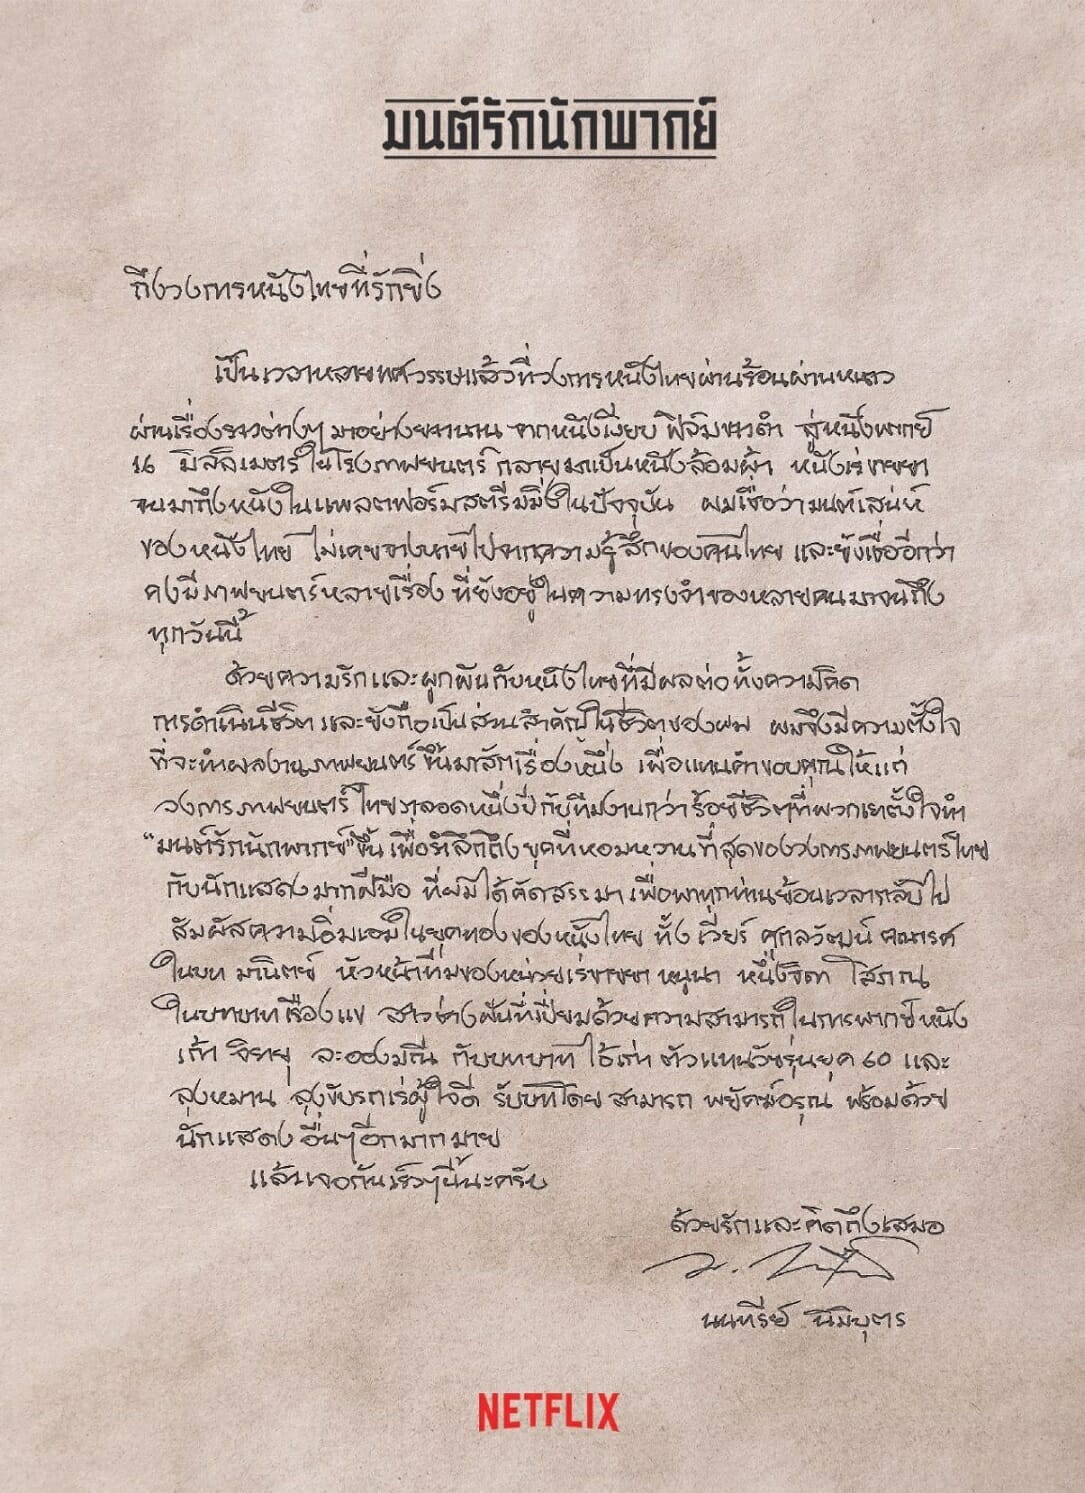 มนต์รักนักพากย์
ถึงวงการหนังไทยที่รักยิ่ง
เป็นเวลาหลายทศวรรษแล้วที่วงการหนังไทยผ่านร้อนผ่านหนาว
ผ่านเรื่องราวต่างๆ มาอย่างยาวนาน จากหนังเงียบ ฟิล์มขาวดำ สู่หนังพากย์
16 มิลลิเมตร ในโรงภาพยนตร์ กลายมาเป็นหนังล้อมผ้า หนังเร่ขายยา
จนมาถึงหนังในแพลตฟอร์มสตรีมมิ่งในปัจจุบัน ผมเชื่อว่ามนต์เสน่ห์
ของหนังไทย ไม่เคยจางหายไปจากความรู้สึกของคนไทย และยังเชื่ออีกว่า
คงมีภาพยนตร์หลายเรื่อง ที่ยังอยู่ในความทรงจำของหลายคนมาจนถึง
ทุกวันนี้
ด้วยความรักและผูกพันกับหนังไทยที่มีผลต่อทั้งความคิด
การดำเนินชีวิต และยังถือเป็นส่วนสำคัญในชีวิตของผม ผมจึงมีความตั้งใจ
ที่จะทำผลงานภาพยนตร์ขึ้นมาสักเรื่องหนึ่ง เพื่อแทนคำขอบคุณให้แก่
วงการภาพยนตร์ไทย ตลอดหนึ่งปีกับทีมงานกว่าร้อยชีวิตที่พวกเราตั้งใจทำ
“มนต์รักนักพากย์” ขึ้น เพื่อรำลึกถึงยุคที่หอมหวานที่สุดของวงการภาพยนตร์ไทย
กับนักแสดงมากฝีมือ ที่ผมได้คัดสรรมา เพื่อพาทุกท่านย้อนเวลากลับไป
สัมผัสความอิ่มเอมในยุคทองของหนังไทย ทั้ง เวียร์ ศุกลวัฒน์ คณารศ
ในบท มานิตย์ หัวหน้าทีมของหน่วยเร่ขายยา หนูนา หนึ่งธิดา โสภณ
ในบทบาทเรืองแข สาวช่างฝันที่เปี่ยมด้วยความสามารถในการพากย์หนัง
เก้า จิรายุ ละอองมณี กับบทบาท ไอ้เก่า ตัวแทนวัยรุ่นยุค 60 และ
ลุงหมาน ลุงขับรถเร่ผู้ใจดี รับบทโดย สามารถ พยัคฆ์อรุณ พร้อมด้วย
นักแสดงอื่นๆ อีกมากมาย
แล้วเจอกันเร็วๆ นี้นะครับ
ด้วยรักและคิดถึงเสมอ
นนทรีย์ นิมิบุตร
NETFLIX